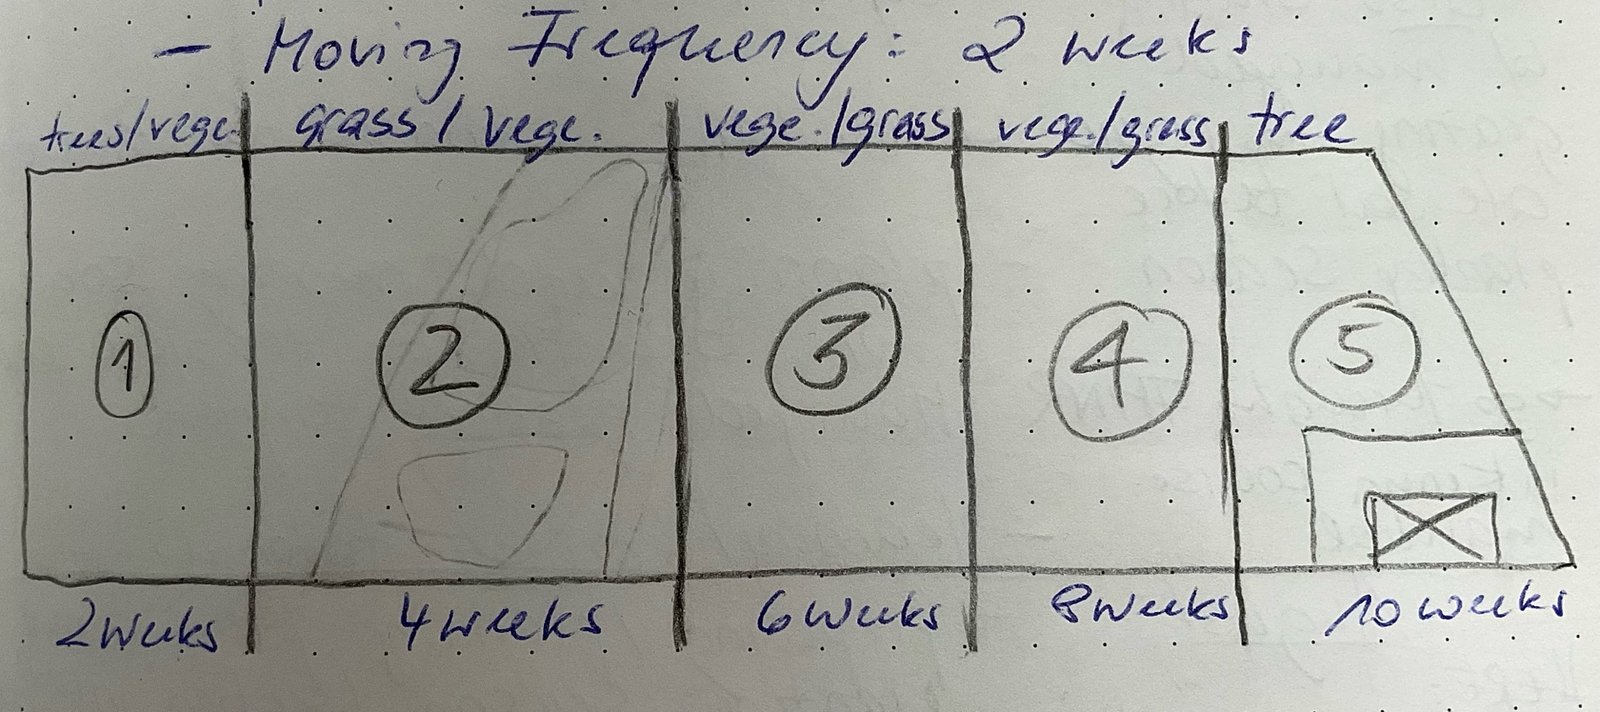 - Moving Frequency: 2 weeks
trees/vege. grass/vege. vege./grass vege./grass tree
1 2 3 4 5
2 weeks 4 weeks 6 weeks 8 weeks 10 weeks